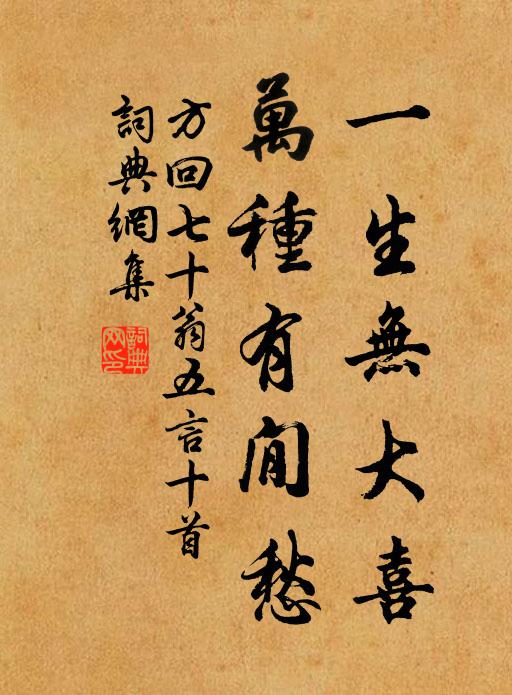 一生無大喜
萬種有閒愁
方回七十翁五言十首
詞典網集
詞典網印